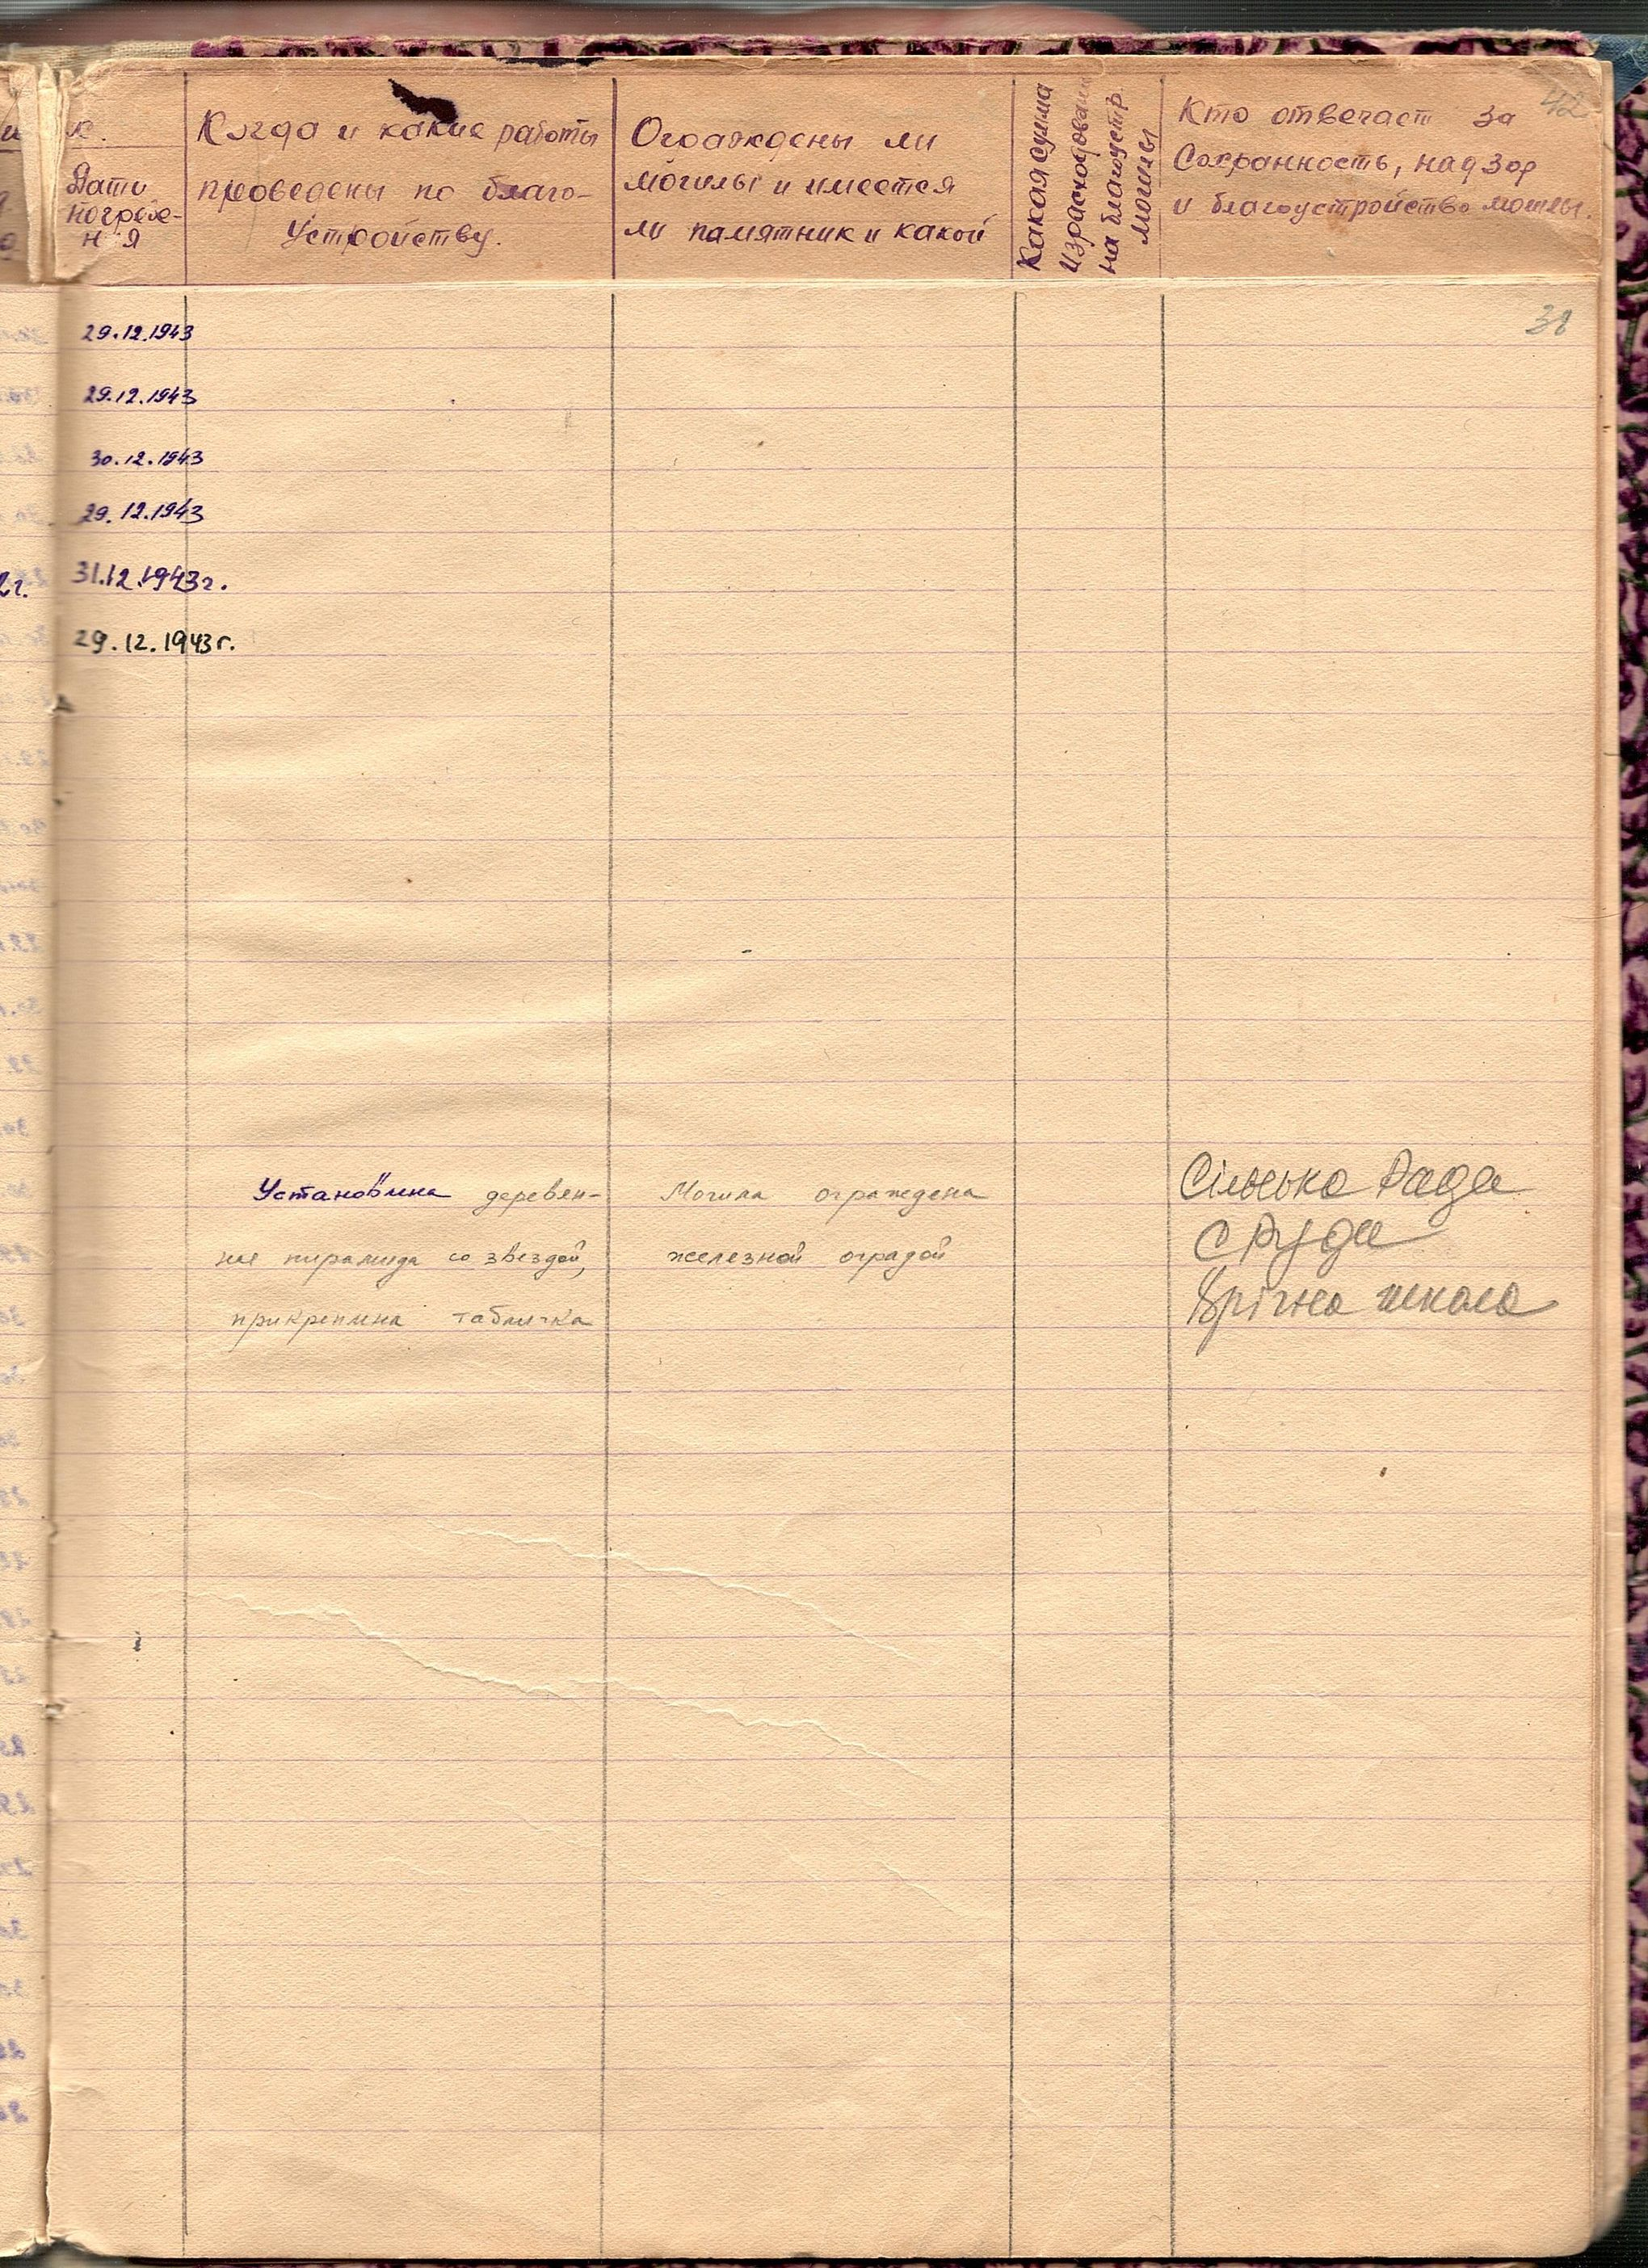 42
к.
Дата
погребе-
ния
Когда и какие работы
проведены по благо-
устройству.
Огоаждены ли
могилы и имеется
ли памятник и какой
Какая сумма
израсходована
на благоустр.
могилы
Кто отвечает за
Сохранность, надзор
и благоустройство могилы.
38
29.12.1943
29.12.1943
30.12.1943
29.12.1943
2г. 31.12.1943г.
29.12.1943г.
Установлена деревян-
ная пирамида со звездой,
прикреплена табличка
Могила ограждена
железной оградой
Сільська Рада
с Руда
школа